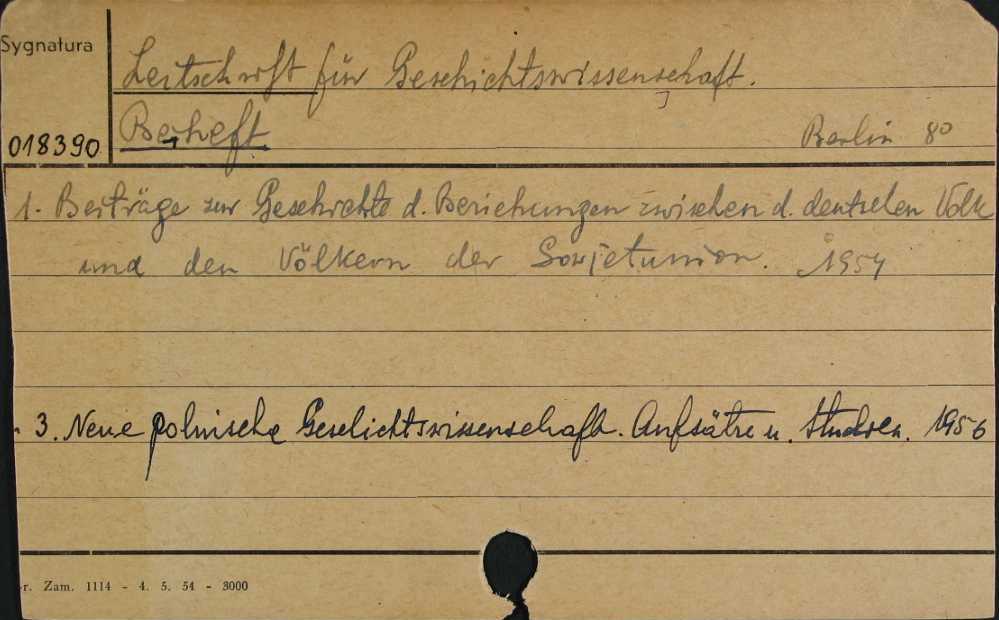 Sygnatura
Zeitschrift für Geschichtswissenschaft.
018390
Beiheft.
Berlin 8°
1. Beiträge zur Geschichte d. Beziehungen zwischen d. deutschen Volk
und den Völkern der Sowjetunion. 1954
3. Neue polnische Geschichtswissenschaft. Aufsätze u. Studien. 1956
r. Zam. 1114 - 4. 5. 54 - 3000